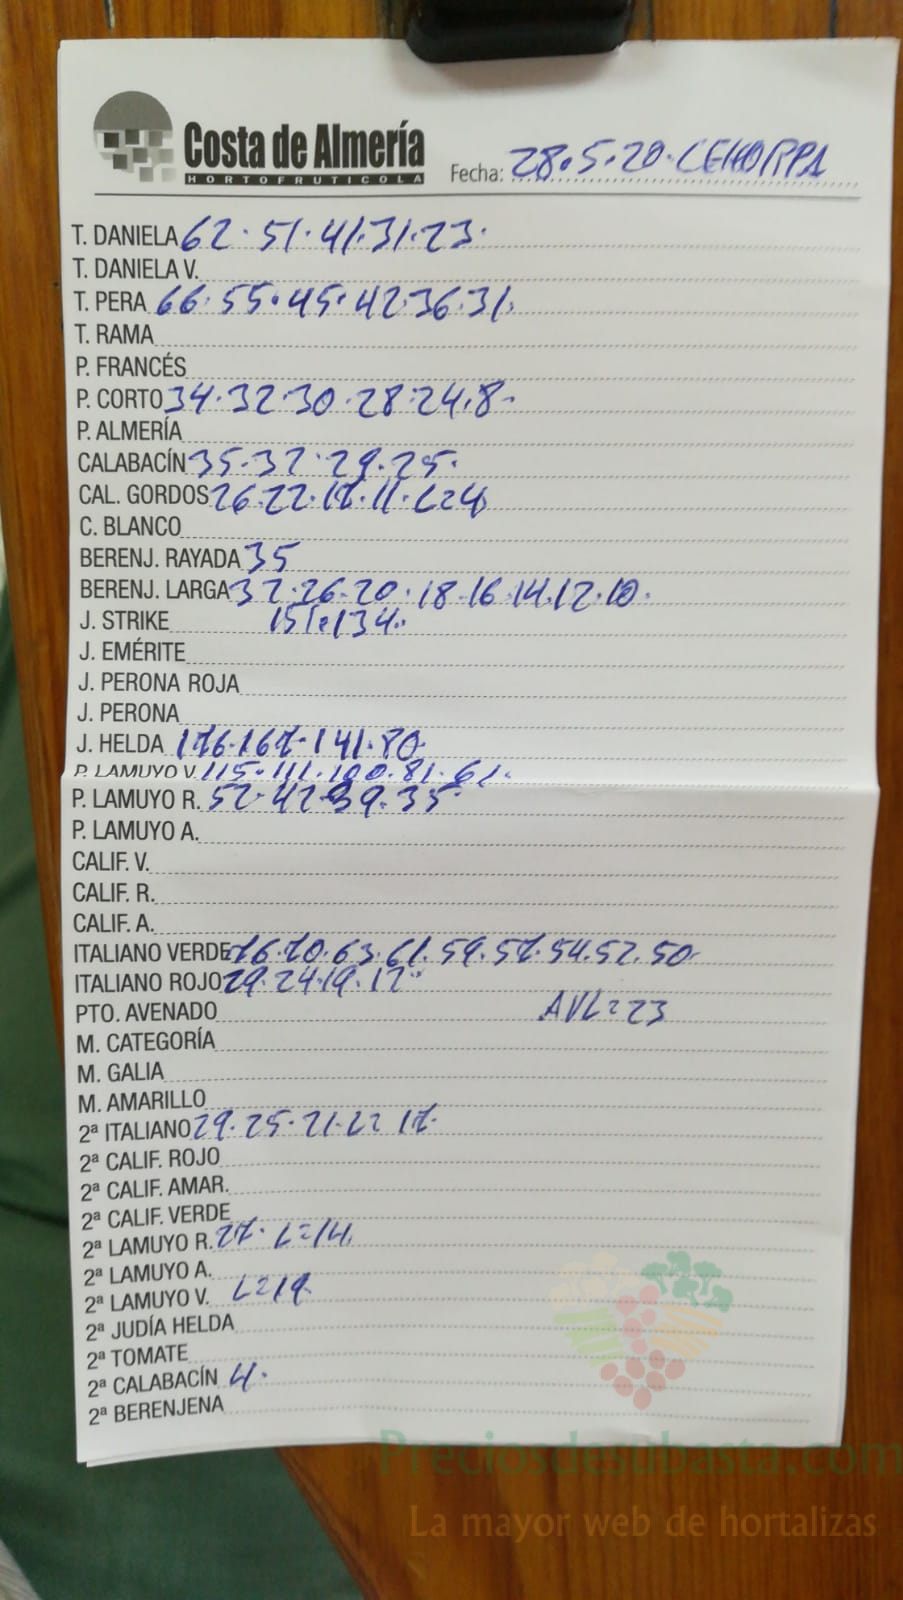 Costa de Almería
HORTOFRUTICOLA
Fecha: 28.5.20. CEHORPA
T. DANIELA 62. 51. 41. 31. 23.
T. DANIELA V.
T. PERA 66. 55. 45. 42. 36. 31.
T. RAMA
P. FRANCÉS
P. CORTO 34. 32. 30. 28. 24. 8.
P. ALMERÍA
CALABACÍN 35. 32. 29. 25.
CAL. GORDOS 26. 22. 17. 11. L=4
C. BLANCO
BERENJ. RAYADA 35
BERENJ. LARGA 32. 26. 20. 18. 16. 14. 12. 10.
J. STRIKE 151. 134.
J. EMÉRITE
J. PERONA ROJA
J. PERONA
J. HELDA 176. 167. 141. 80.
P. LAMUYO V. 115. 111. 100. 81. 61.
P. LAMUYO R. 52. 42. 39. 35.
P. LAMUYO A.
CALIF. V.
CALIF. R.
CALIF. A.
ITALIANO VERDE 76. 70. 63. 61. 59. 57. 54. 52. 50.
ITALIANO ROJO 29. 24. 19. 12.
PTO. AVENADO AVL=23
M. CATEGORÍA
M. GALIA
M. AMARILLO
2ª ITALIANO 29. 25. 21. L= 17.
2ª CALIF. ROJO
2ª CALIF. AMAR.
2ª CALIF. VERDE
2ª LAMUYO R. 27. L=14.
2ª LAMUYO A.
2ª LAMUYO V. L=19.
2ª JUDÍA HELDA
2ª TOMATE
2ª CALABACÍN 4.
2ª BERENJENA
Preciosdesubasta.com
La mayor web de hortalizas